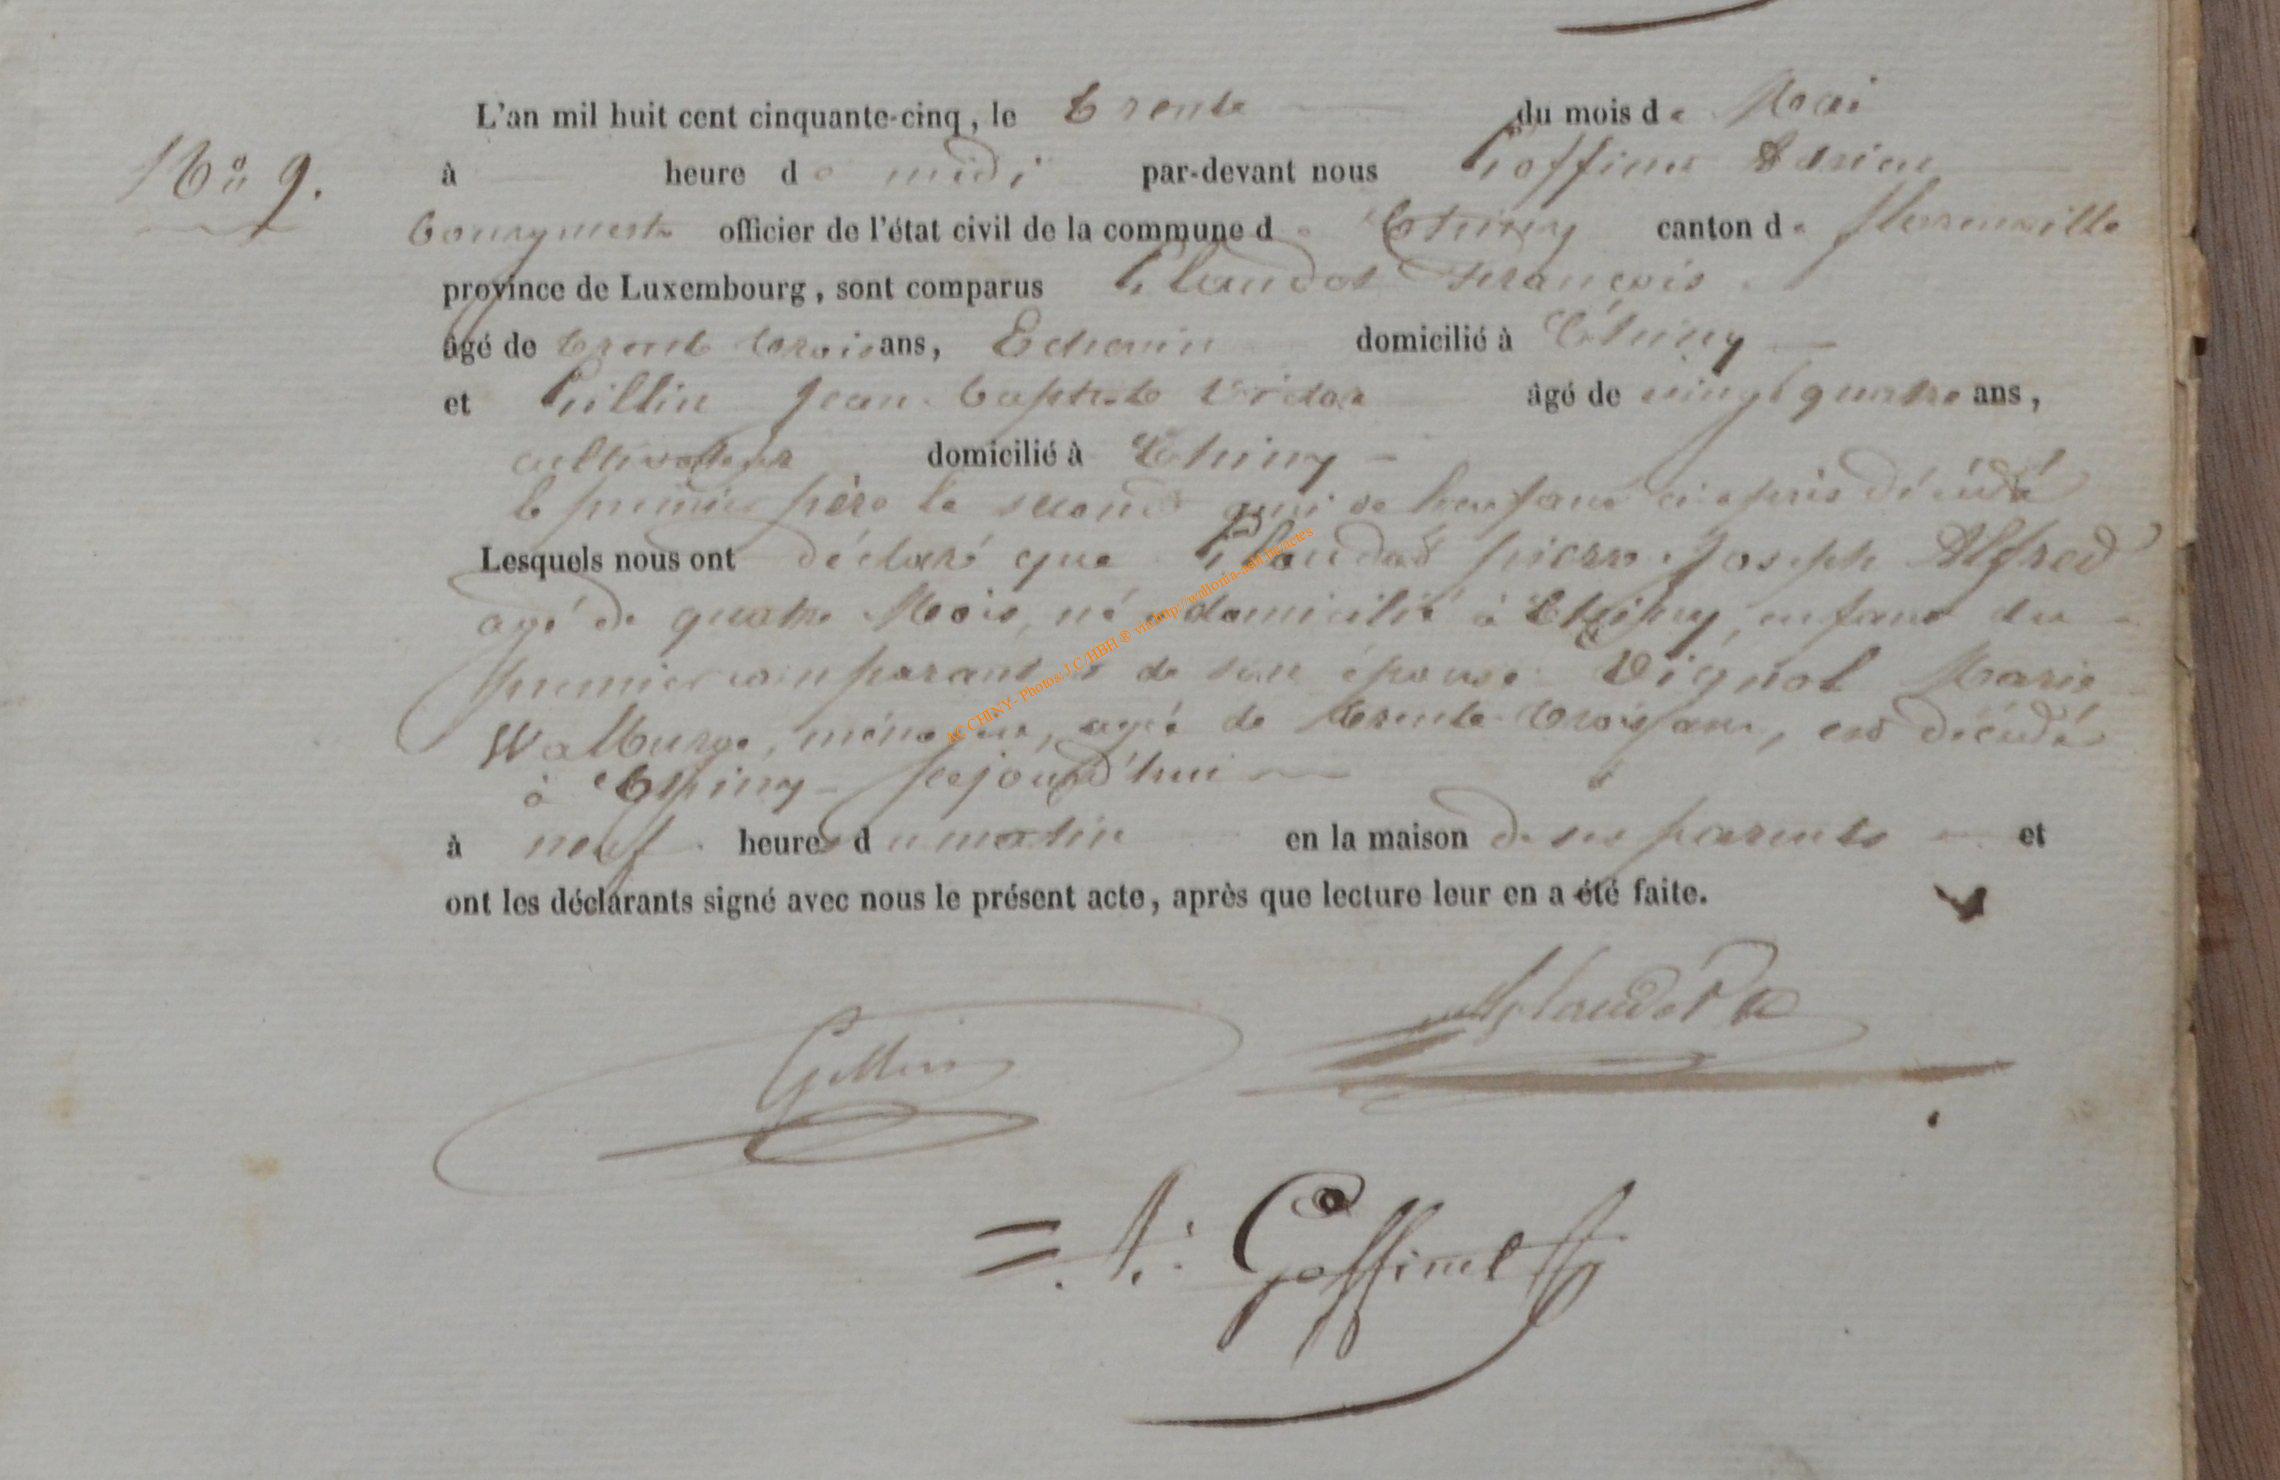 L'an mil huit cent cinquante-cinq, le trente du mois de Mai
No 9. à heure de midi par-devant nous Goffinet Adrien
bourgmestre officier de l'état civil de la commune de Chiny canton de florenville
province de Luxembourg, sont comparus Claudot François
âgé de trente trois ans, Echevin domicilié à Chiny
et Gillin Jean baptiste Victor âgé de vingt quatre ans,
cultivateur domicilié à Chiny
le premier père le second ami de l'enfant ci après décédé
Lesquels nous ont déclaré que Claudot pierre Joseph Alfred
agé de quatre Mois, né & domicilié à Chiny, enfant du
premier comparant & de son épouse Vignol Marie
Walburge, ménagère, agée de trente trois ans, est décédé
à Chiny cejourd'hui
à neuf heures du matin en la maison de ses parents et
ont les déclarants signé avec nous le présent acte, après que lecture leur en a été faite.
Gillin Claudot
A. Goffinet
AC CHINY- Photos J.C/HBH ® via http://wallonia-asbl.be/actes